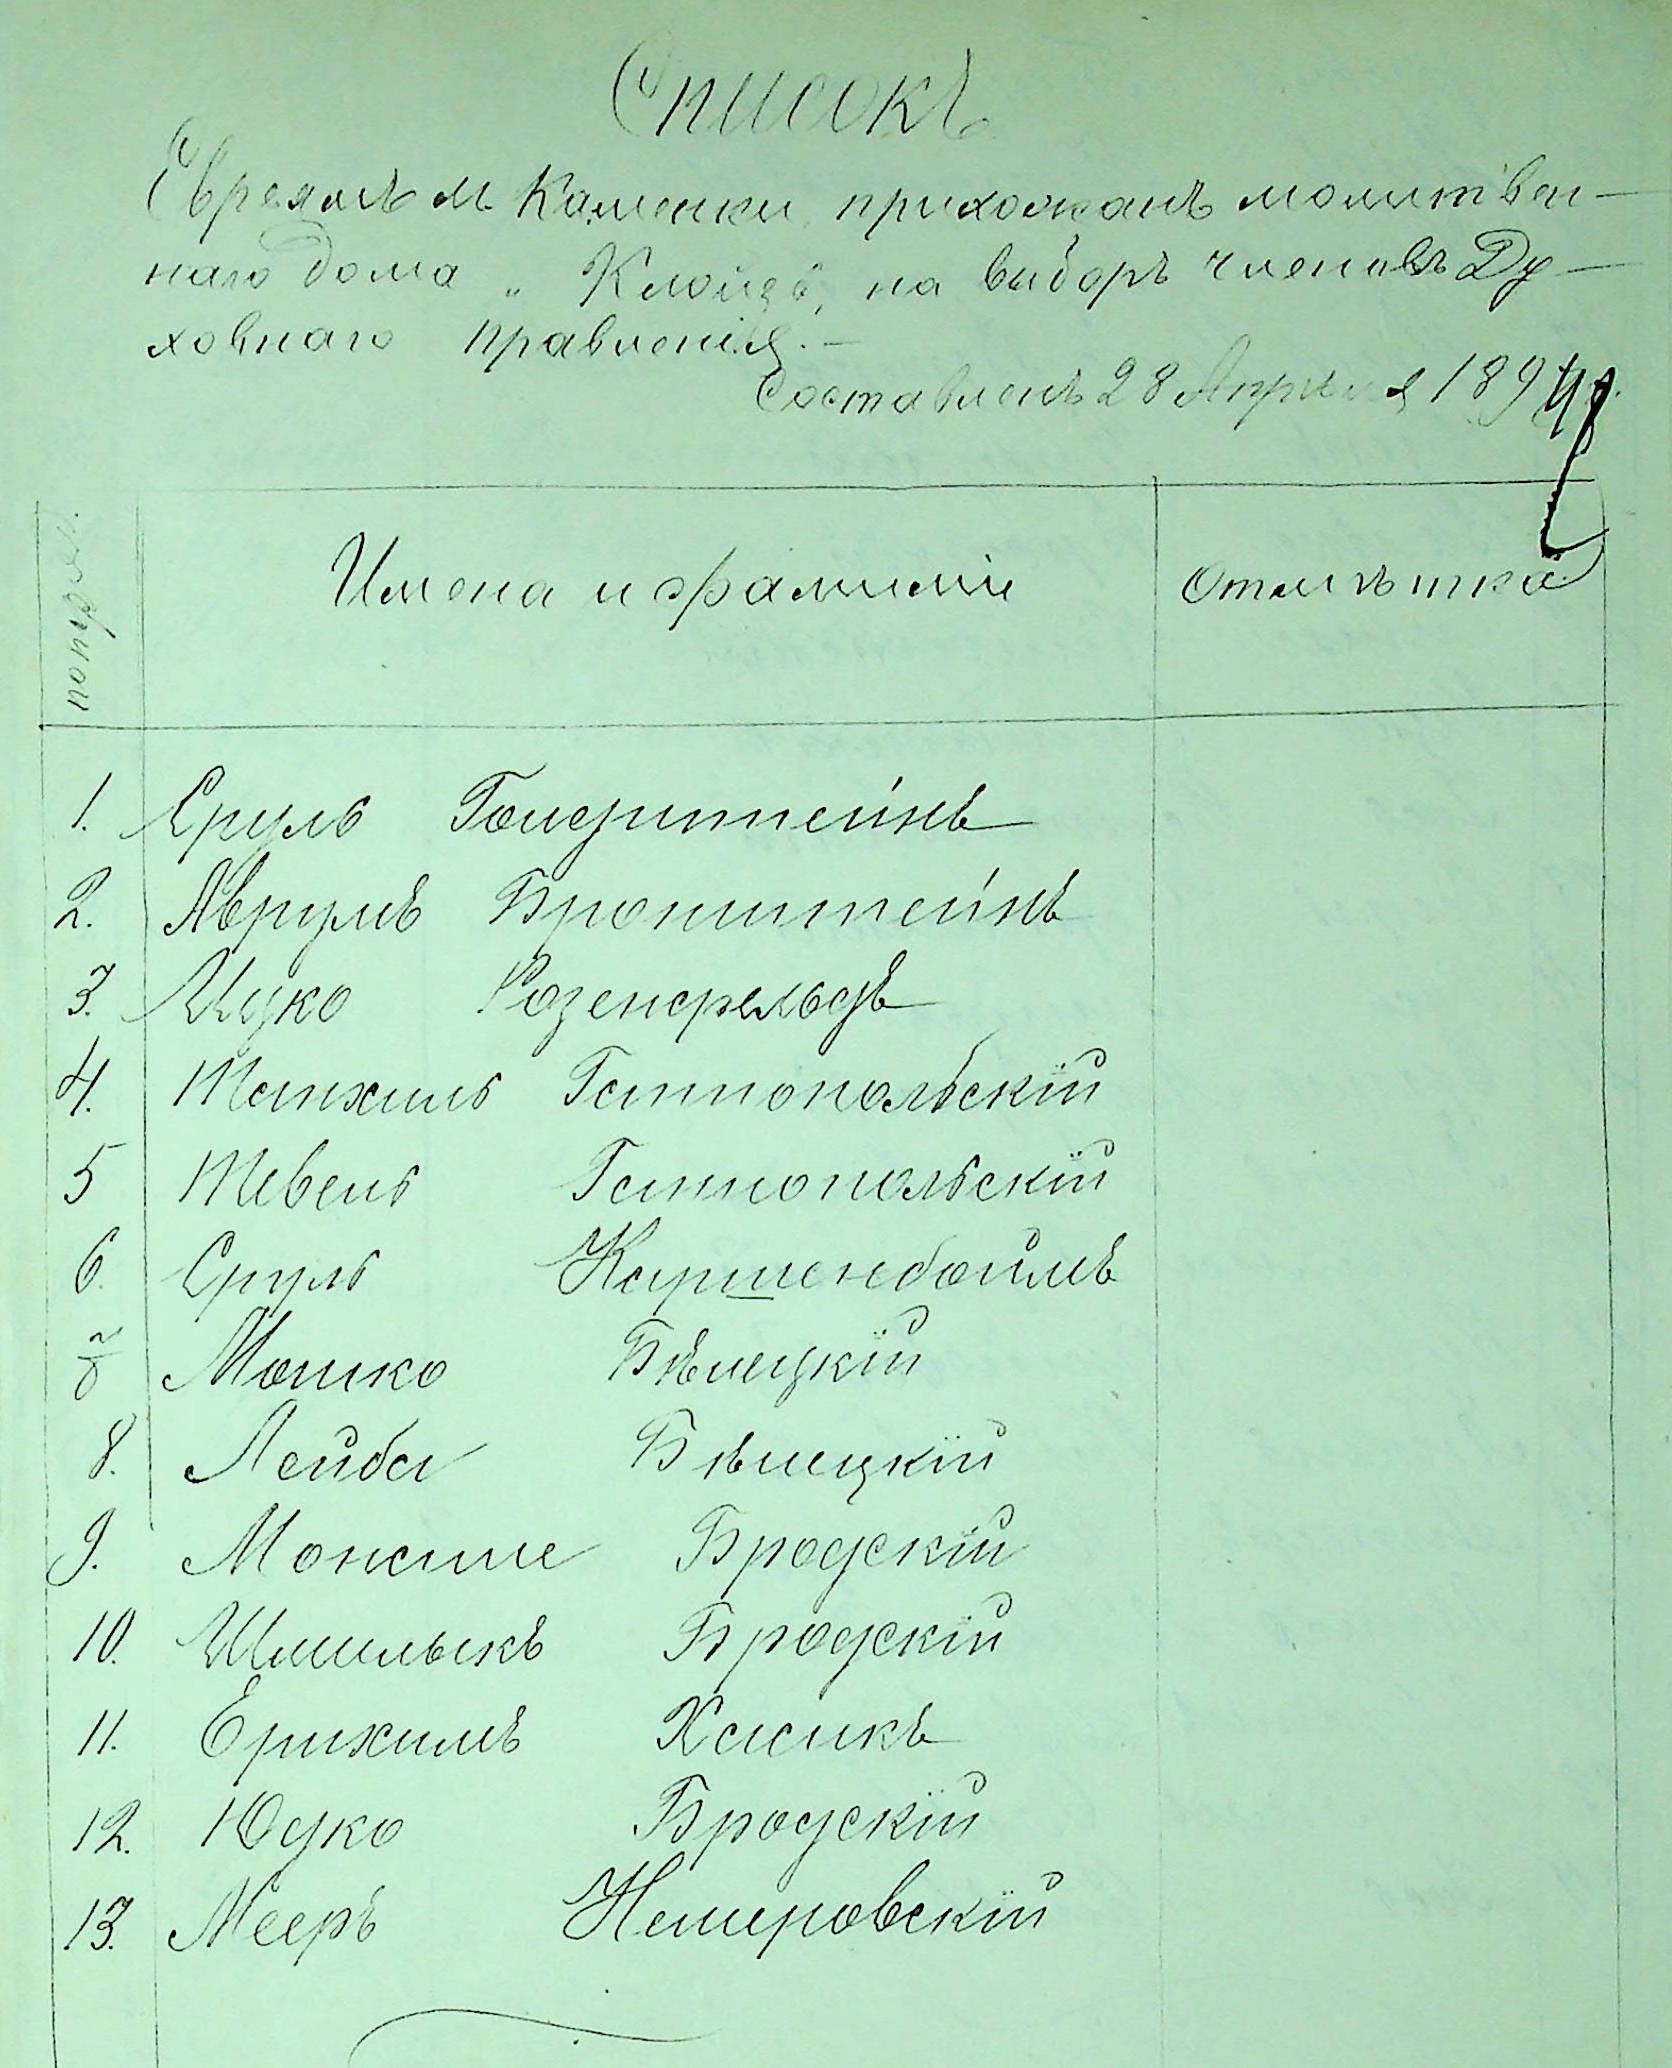 Списокъ
Евреямъ м. Каменки, прихожанъ молитвен-
наго дома „Клойзъ", на выборъ членовъ Ду-
ховнаго правленія.-
Составленъ 28 Апрѣля 1894 г.
по пор.
Имена и фамиліи
Отмѣтка
1. Сруль Гольдштейнъ
2. Аврумъ Бронштейнъ
3. Ицко Розенфельдъ
4. Танхиль Ганнопольскій
5 Тевель Ганнопольскій
6. Сруль Каршенбоймъ
7 Мошко Бѣлецкій
8. Лейба Бѣлецкій
9. Монаше Бродскій
10. Шмилыкъ Бродскій
11. Ерихимъ Хасикъ
12. Юдко Бродскій
13. Мееръ Немировскій